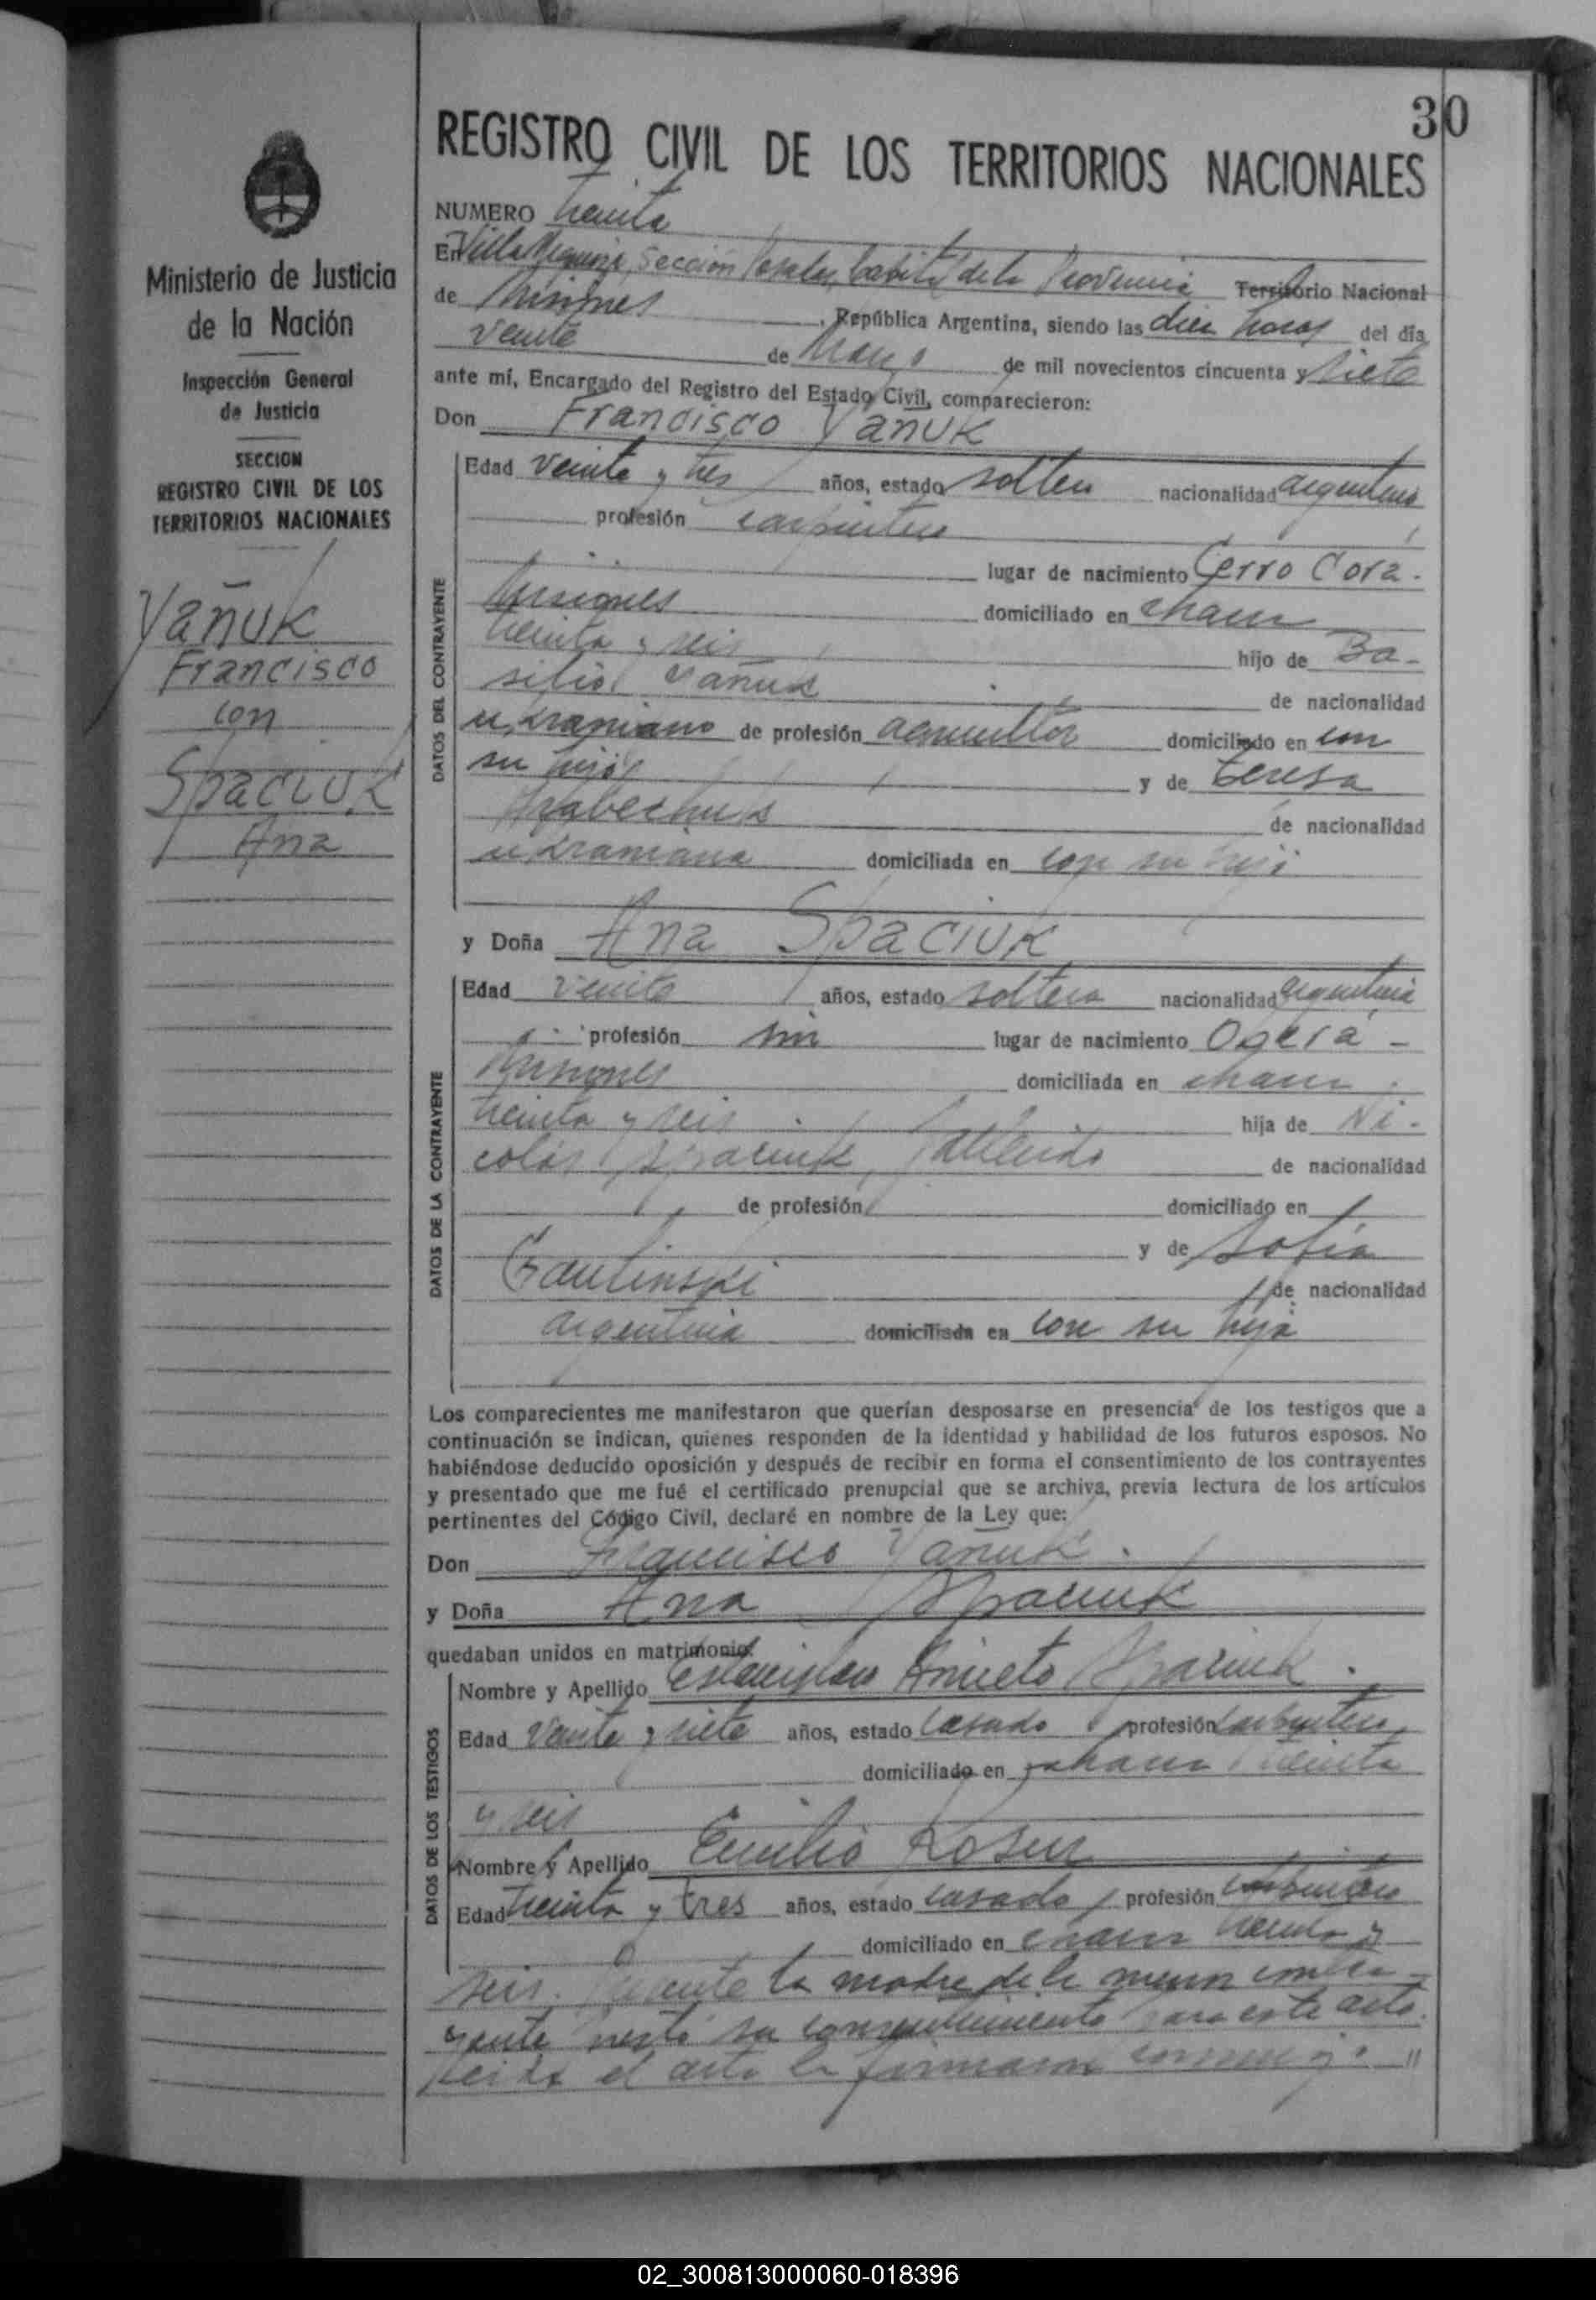 30
REGISTRO CIVIL DE LOS TERRITORIOS NACIONALES
Ministerio de Justicia
de la Nación
Inspección General
de Justicia
SECCION
REGISTRO CIVIL DE LOS
TERRITORIOS NACIONALES
Yañuk
Francisco
con
Spaciuk
Ana
NUMERO treinta
En Villa Sección Posadas, Capital de la Provincia Territorio Nacional
de Misiones, República Argentina, siendo las diez horas del día
veinte de Marzo de mil novecientos cincuenta y siete
ante mí, Encargado del Registro del Estado Civil, comparecieron:
Don Francisco Yañuk
DATOS DEL CONTRAYENTE
Edad veinte y tres años, estado soltero nacionalidad argentino
profesión carpintero
lugar de nacimiento Cerro Corá -
Misiones domiciliado en chacra
treinta y seis, hijo de Ba-
silio Yañuk de nacionalidad
ukraniano de profesión agricultor domiciliado en con
su hijo y de Teresa
de nacionalidad
ukraniana domiciliada en con su hijo
y Doña Ana Spaciuk
DATOS DE LA CONTRAYENTE
Edad veinte años, estado soltera nacionalidad argentina
profesión sin lugar de nacimiento Oberá -
Misiones domiciliada en chacra
treinta y seis hija de Ni-
colás Spaciuk, fallecido de nacionalidad
de profesión domiciliado en
y de Sofía
de nacionalidad
argentina domiciliada en con su hija
Los comparecientes me manifestaron que querían desposarse en presencia de los testigos que a
continuación se indican, quienes responden de la identidad y habilidad de los futuros esposos. No
habiéndose deducido oposición y después de recibir en forma el consentimiento de los contrayentes
y presentado que me fué el certificado prenupcial que se archiva, previa lectura de los artículos
pertinentes del Código Civil, declaré en nombre de la Ley que:
Don Francisco Yañuk.
y Doña Ana Spaciuk
quedaban unidos en matrimonio.
DATOS DE LOS TESTIGOS
Nombre y Apellido Estanislao Aniceto Spaciuk.
Edad veinte y siete años, estado casado profesión carpintero
domiciliado en chacra treinta
y seis
Nombre y Apellido Emilio
Edad treinta y tres años, estado casado profesión carpintero
domiciliado en chacra treinta y
seis. Presente la madre de la menor contra-
yente prestó su consentimiento para este acto.
Leida el acta la firmaron conmigo. "
02_300813000060-018396